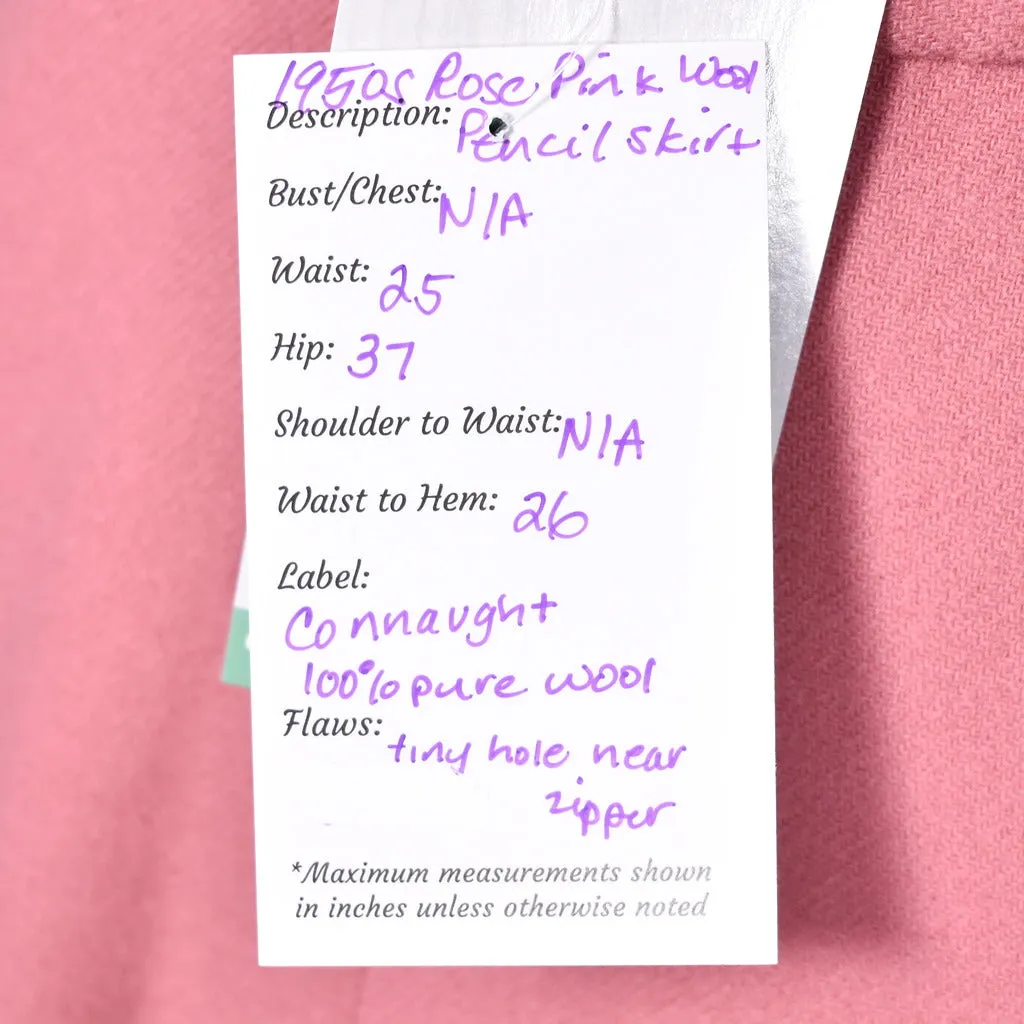 1950s Rose Pink Wool
Description: Pencil skirt
Bust/Chest: N/A
Waist: 25
Hip: 37
Shoulder to Waist: N/A
Waist to Hem: 26
Label:
Connaught
100% pure wool
Flaws:
tiny hole near
zipper
*Maximum measurements shown
in inches unless otherwise noted